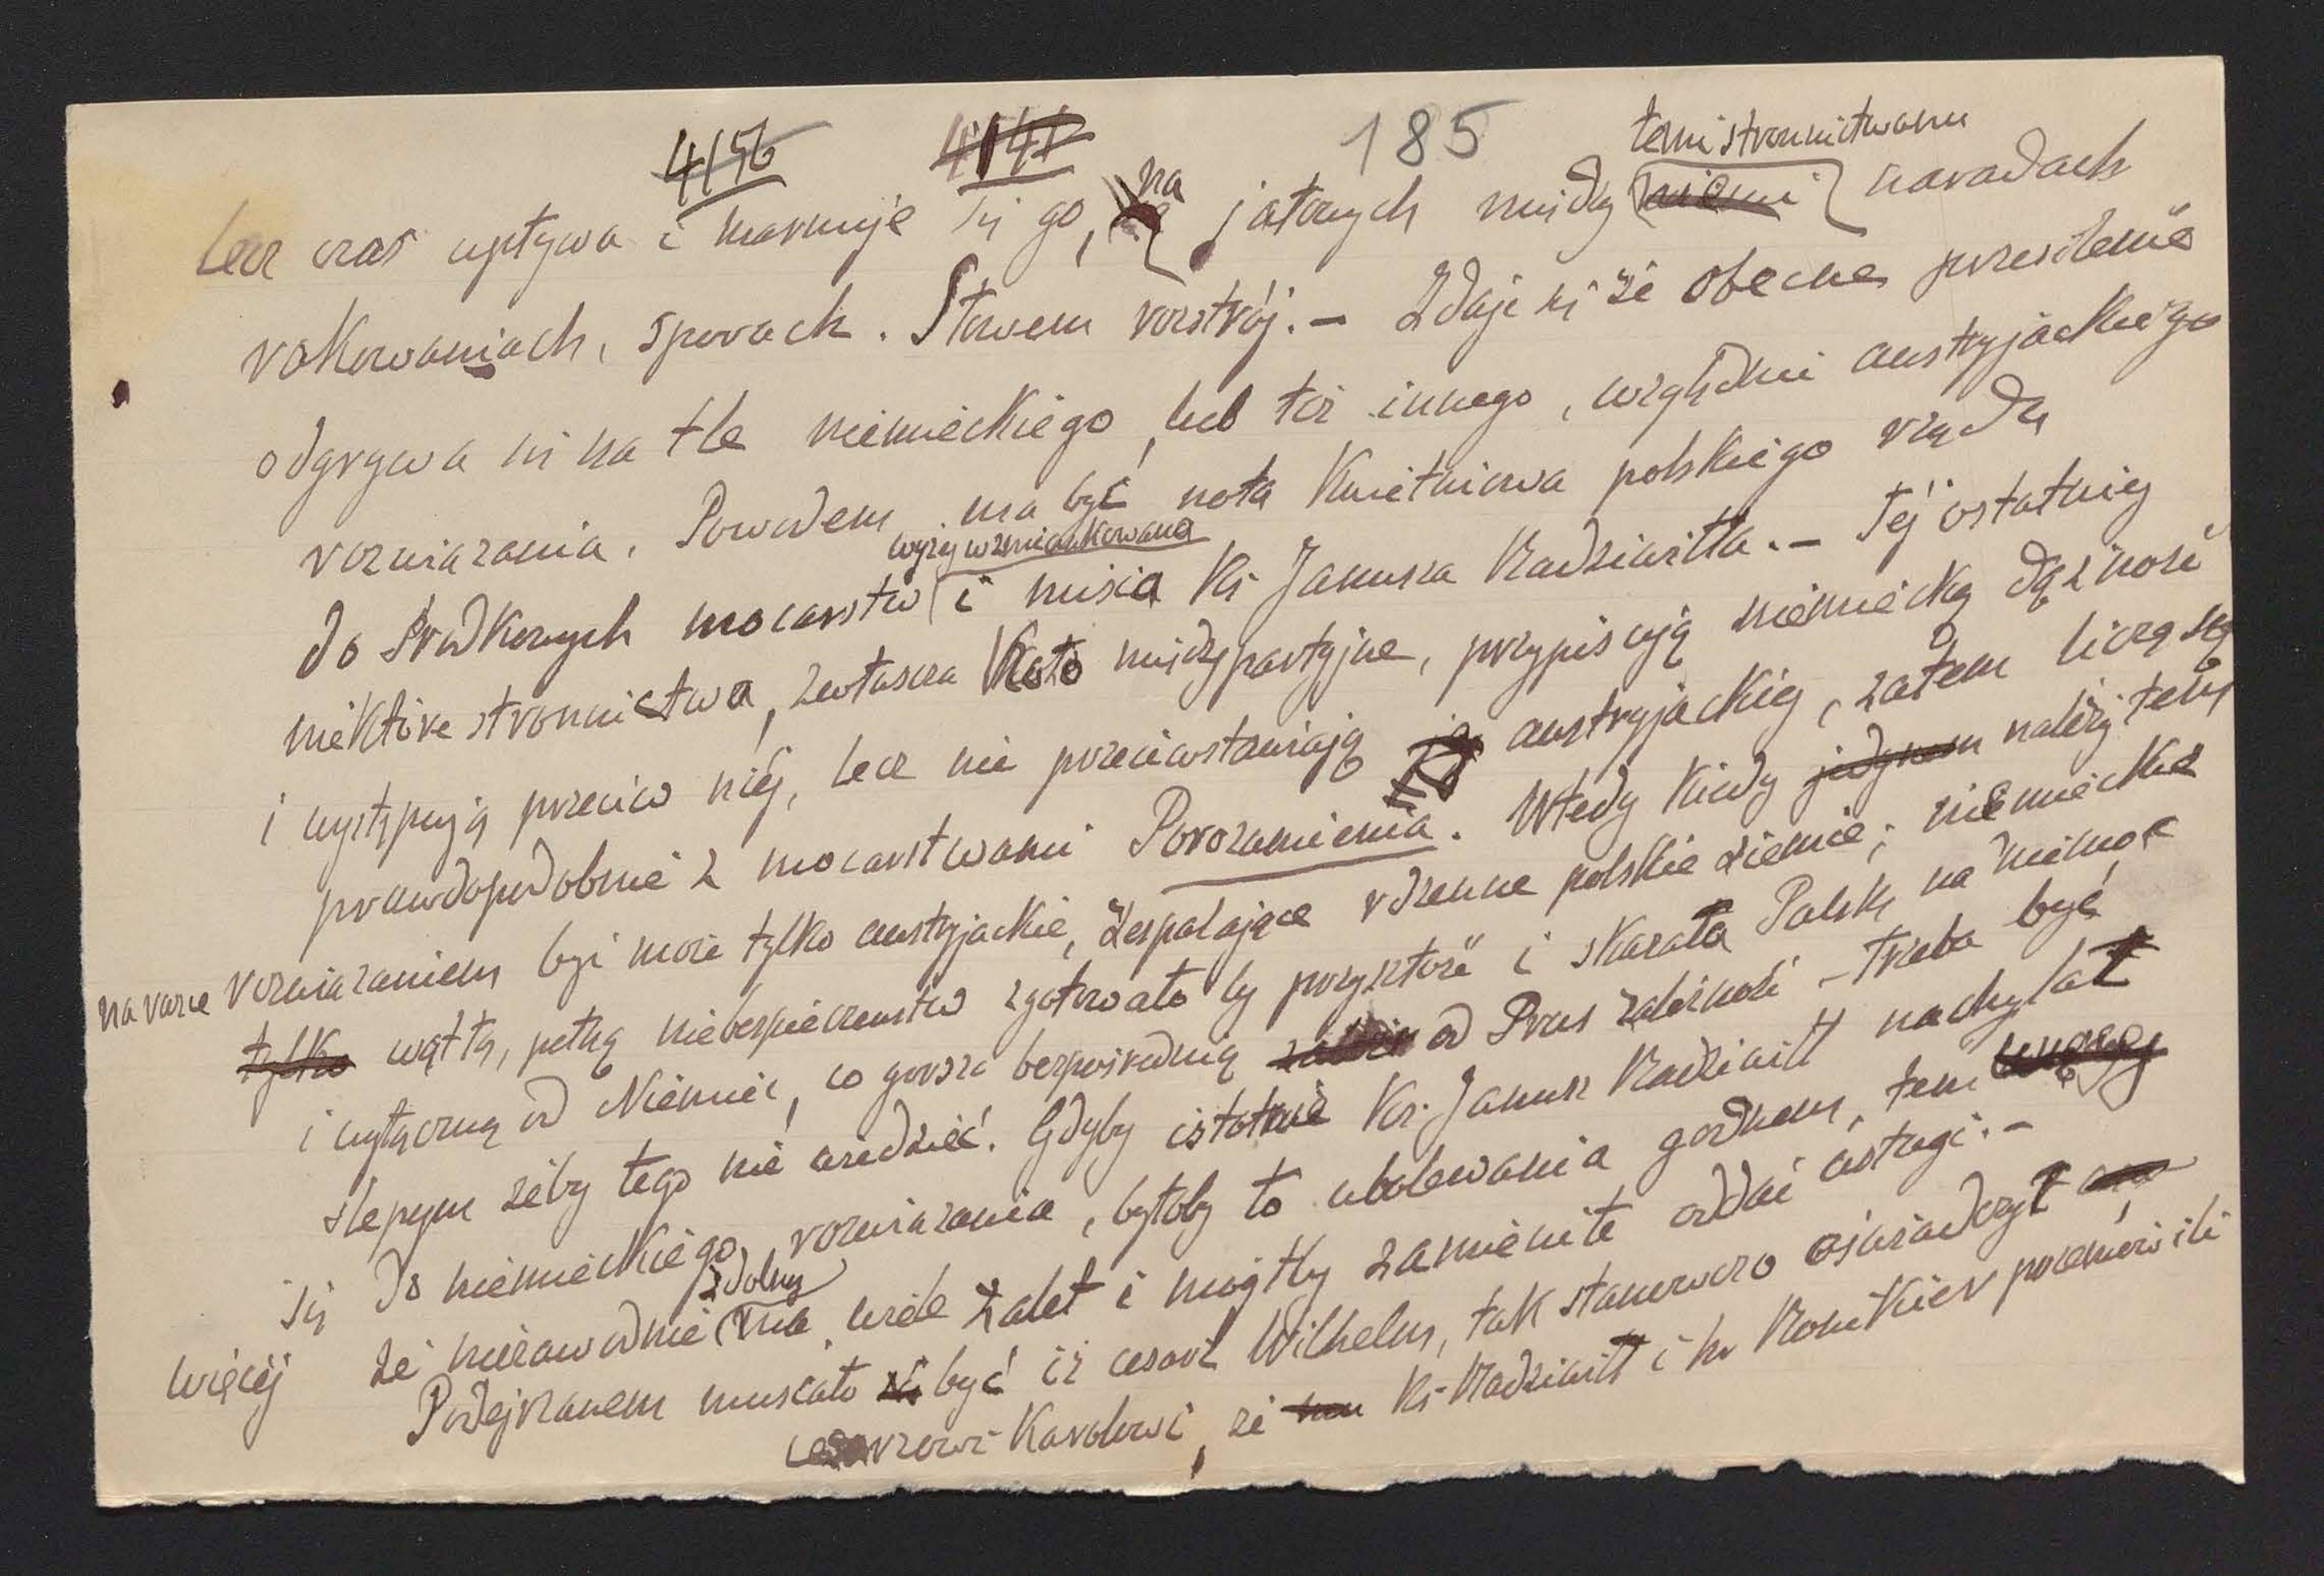 4156 4141 185 temi stronnictwami
Lecz czas upływa i marnuje się go, na jałowych między niemi naradach
rokowaniach, sporach. Słowem rozstrój. – Zdaje się że obecne przesilenie
odgrywa się na tle niemieckiego, lub też innego, względnie austryjackiego
rozwiązania. Powodem ma być nota Kwietniowa polskiego rządu
wyżej wzmiankowana
do środkowych mocarstw i misia Ks. Janusza Radziwiłła. – Tej ostatniej
niektóre stronnictwa, zwłaszcza Koło międzypartyjne, przypisują niemiecką dążność
i występują przeciw niej, lecz nie przeciwstawiają jej austryjackiej, zatem liczą się
prawdopodobnie z mocarstwami Porozumienia. Wtedy kiedy jedynem należytem
na razie rozwiązaniem być może tylko austryjackie, zespalające rdzenne polskie ziemie; niemieckie
tylko wątłą, pełną niebezpieczeństw zgotowało by przyszłość i skazała Polskę na niemoc
i wyłączną od Niemiec, co gorsza bezpośrednią od Prus zależność – trzeba być
ślepym żeby tego nie wiedzieć. Gdyby istotnie Ks. Janusz Radziwiłł nachylał
się do niemieckiego rozwiązania, byłoby to ubolewania godnem, tem
zdolny
więcej że niezawodnie ma wiele zalet i mógłby zamienite oddać usługi. –
Podejrzanem musiało być iż cesarz Wilhelm, tak stanowczo oświadczył
cesarzowi Karolowi, że Ks. Radziwiłł i hr Ronikier przemówili